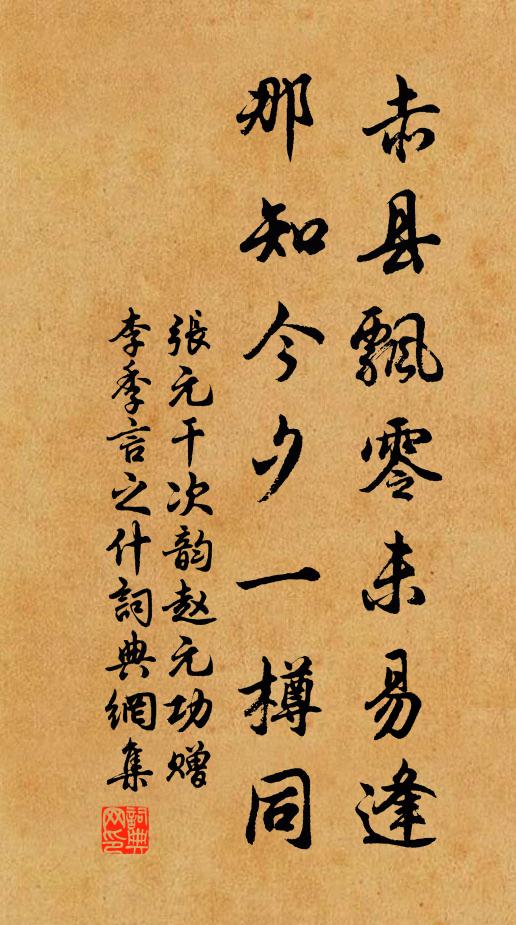 赤县飘零未易逢
那知今夕一樽同
張元干次韵赵元功赠
李季言之什詞典網集
詞典网印